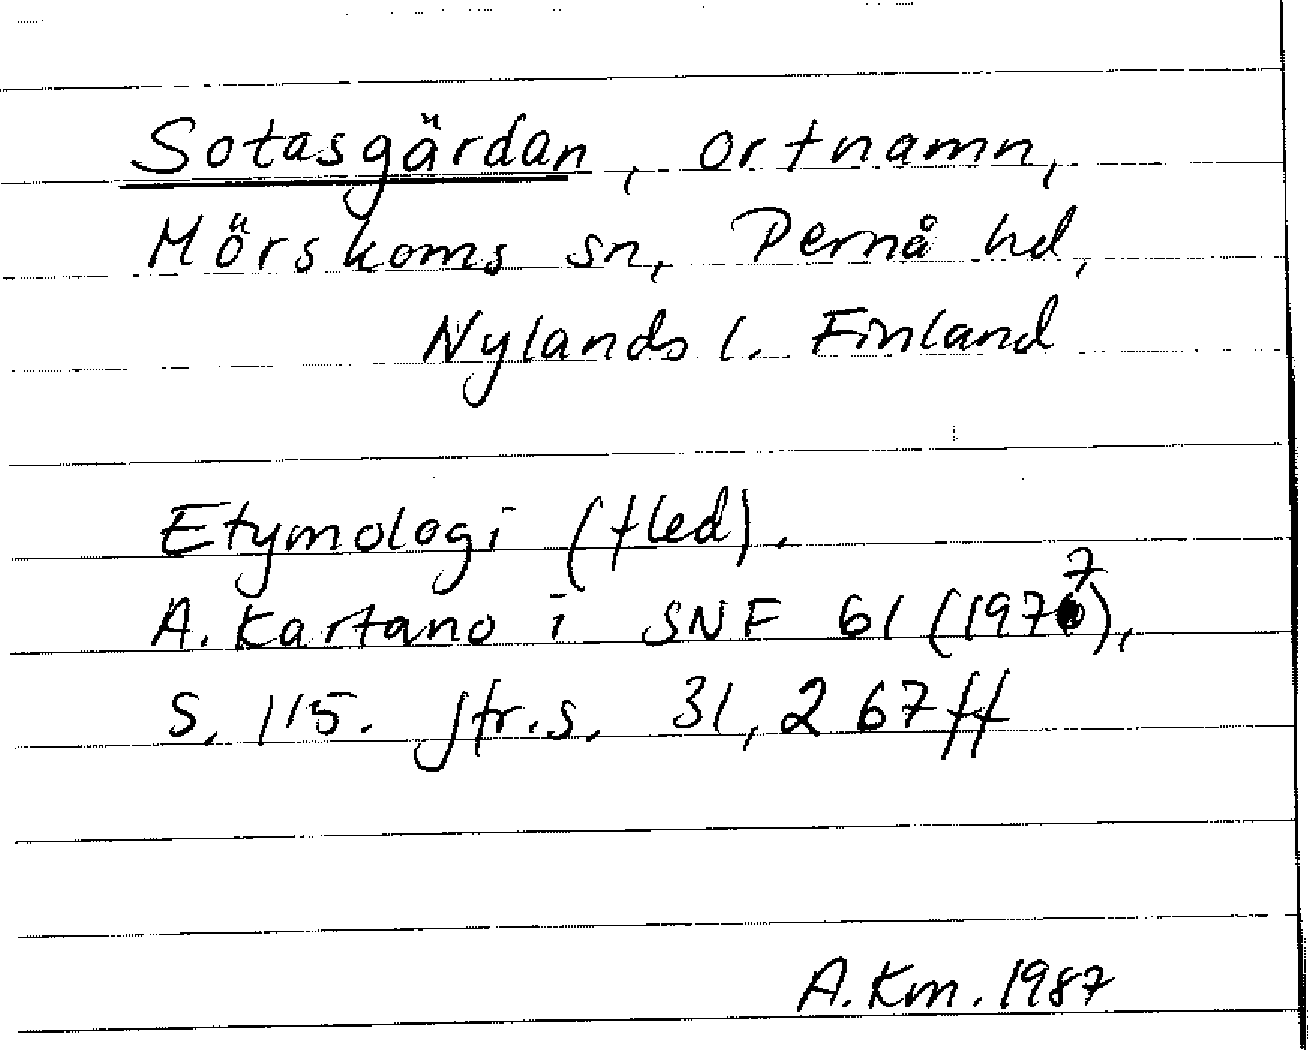 Sotasgärdan, ortnamn,
Mörskoms sn, Pernå hd,
Nylands l. Finland
Etymologi (fled).
A. Kartano i SNF 61 (1977),
S. 115. Jfr. s. 31, 267 ff
A. Km. 1987